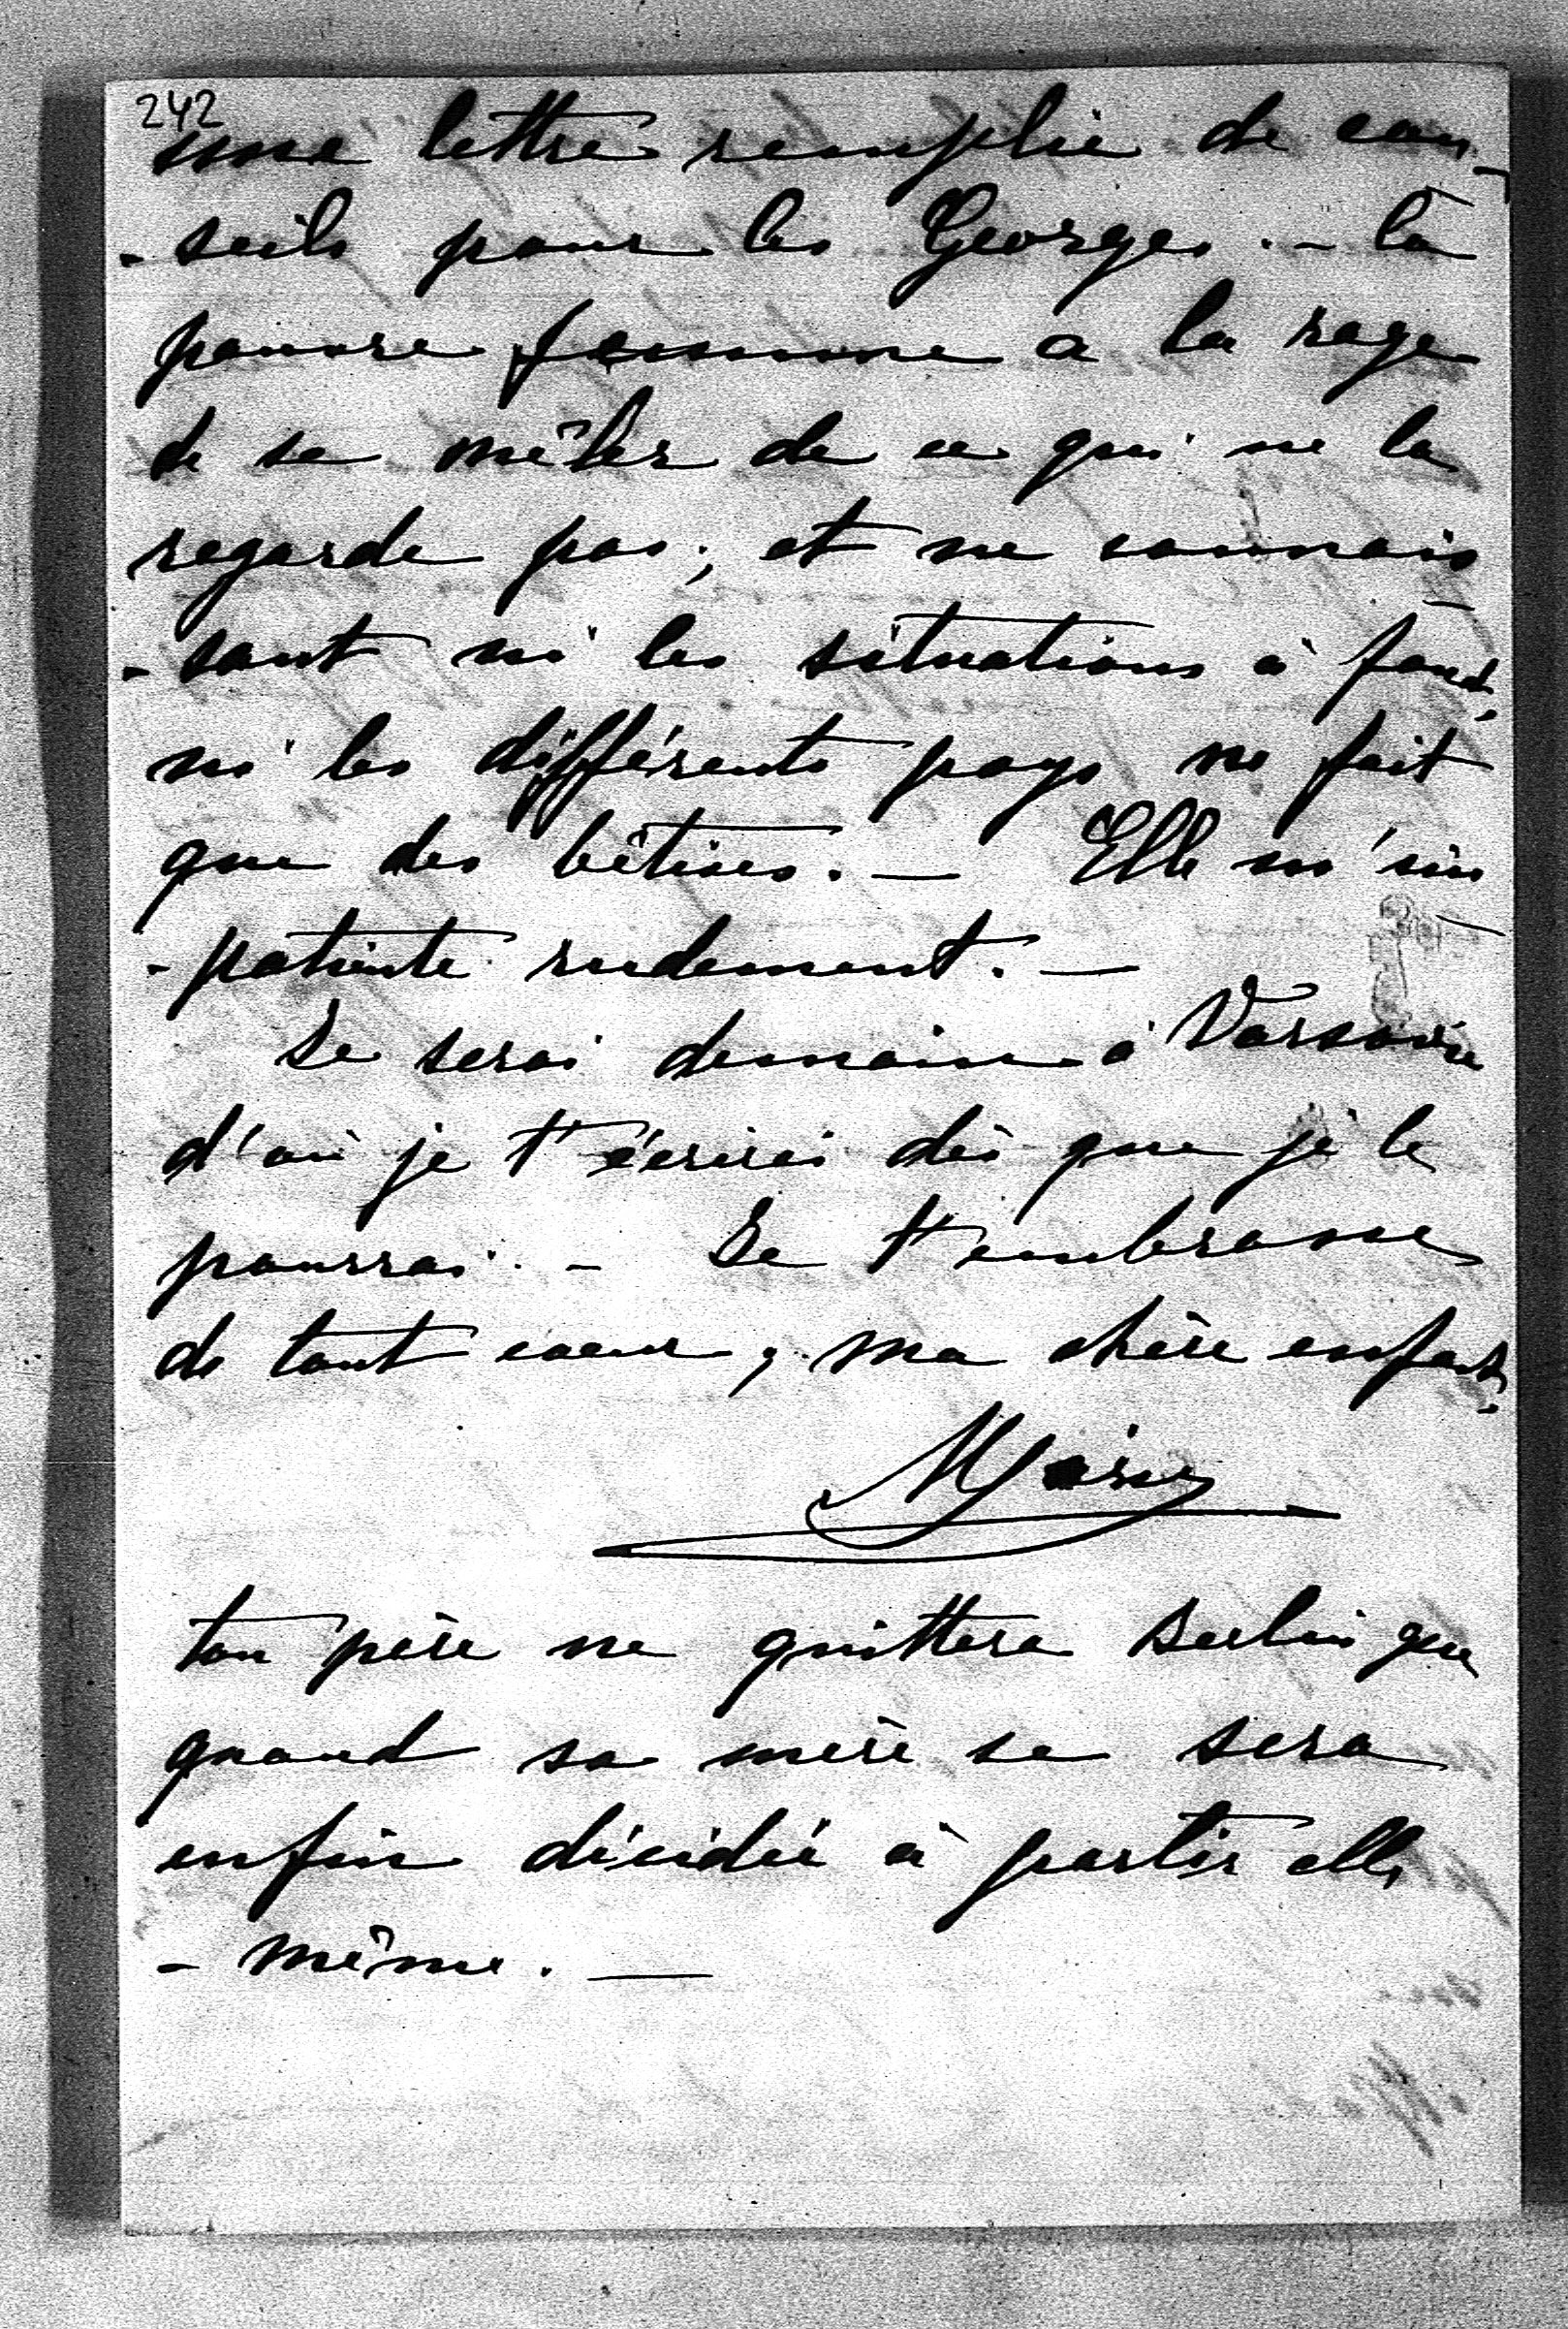 242
une lettre remplie de con-
-seils pour les Georges. - la
pauvre femme a la rage
de se mêler de ce qui ne la
regarde pas; et ne connais-
-sant ni les situations à fond,
ni les différents pays ne fait
que des bêtises. — Elle m'im-
-patiente rudement. —
Je serai demain à Varsovie
d'où je t'écrirai dès que je le
pourrai. - Je t'embrasse
de tout coeur, ma chère enfant.
Marie
ton père ne quittera Berlin que
quand sa mère se sera
enfin décidée à partir elle
- même. —